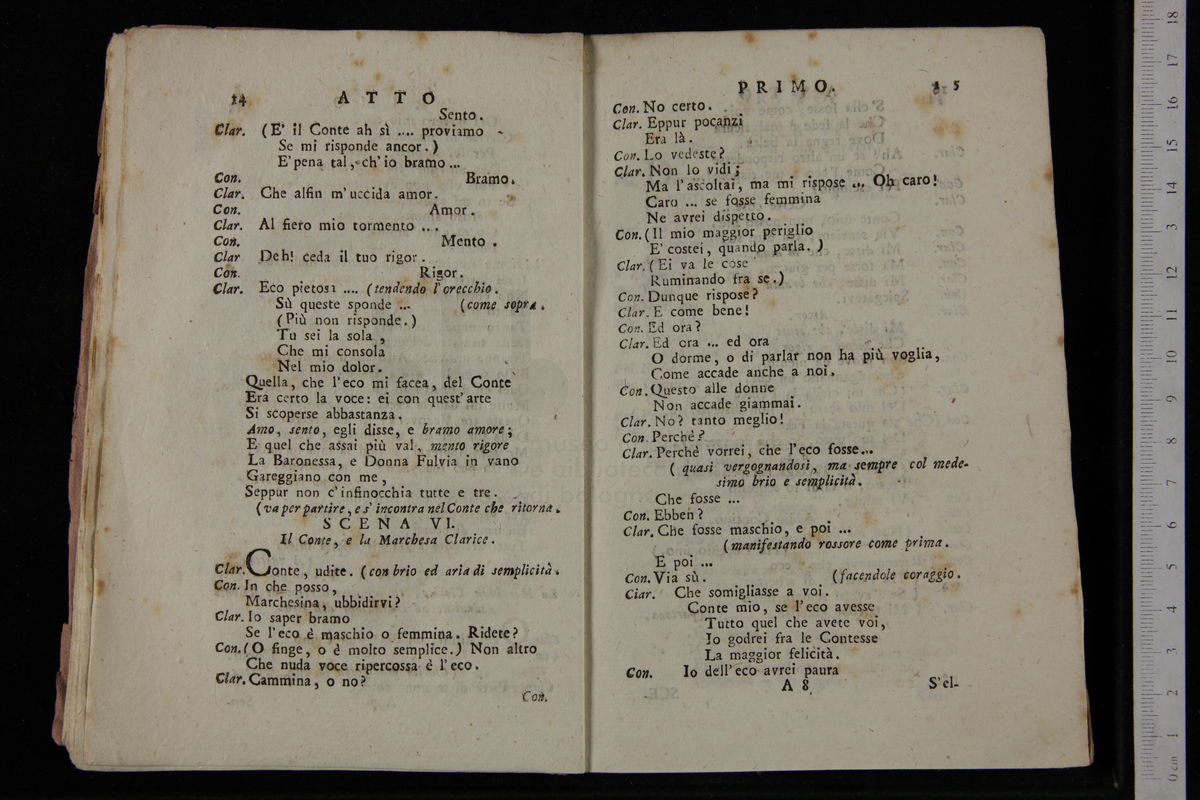 14 ATTO
Sento.
Clar. (E' il Conte ah sì .... proviamo
Se mi risponde ancor.)
E' pena tal, ch'io bramo ...
Con. Bramo.
Clar. Che alfin m'uccida amor.
Con. Amor.
Clar. Al fiero mio tormento ...
Con. Mento.
Clar Deh! ceda il tuo rigor.
Con. Rigor.
Clar. Eco pietosa .... (tendendo l'orecchio.
Sù queste sponde ... (come sopra.
(Più non risponde.)
Tu sei la sola,
Che mi consola
Nel mio dolor.
Quella, che l'eco mi facea, del Conte
Era certo la voce: ei con quest'arte
Si scoperse abbastanza.
Amo, sento, egli disse, e bramo amore;
E quel che assai più val, mento rigore
La Baronessa, e Donna Fulvia in vano
Gareggiano con me,
Seppur non c'infinocchia tutte e tre.
(va per partire, e s'incontra nel Conte che ritorna.
SCENA VI.
Il Conte, e la Marchesa Clarice.
Clar. Conte, udite. (con brio ed aria di semplicità.
Con. In che posso,
Marchesina, ubbidirvi?
Clar. Io saper bramo
Se l'eco è maschio o femmina. Ridete?
Con. (O finge, o è molto semplice.) Non altro
Che nuda voce ripercossa è l'eco.
Clar. Cammina, o no?
Con.
PRIMO. 15
Con. No certo.
Clar. Eppur pocanzi
Era là.
Con. Lo vedeste?
Clar. Non lo vidi;
Ma l'ascoltai, ma mi rispose ... Oh caro!
Caro ... se fosse femmina
Ne avrei dispetto.
Con. (Il mio maggior periglio
E' costei, quando parla.)
Clar. (Ei va le cose
Ruminando fra se.)
Con. Dunque rispose?
Clar. E come bene!
Con. Ed ora?
Clar. Ed ora ... ed ora
O dorme, o di parlar non ha più voglia,
Come accade anche a noi.
Con. Questo alle donne
Non accade giammai.
Clar. No? tanto meglio!
Con. Perchè?
Clar. Perchè vorrei, che l'eco fosse...
( quasi vergognandosi, ma sempre col mede-
simo brio e semplicità.
Che fosse ...
Con. Ebben?
Clar. Che fosse maschio, e poi ...
(manifestando rossore come prima.
E poi ...
Con. Via sù. (facendole coraggio.
Clar. Che somigliasse a voi.
Conte mio, se l'eco avesse
Tutto quel che avete voi,
Io godrei fra le Contesse
La maggior felicità.
Con. Io dell'eco avrei paura
A 8 S'el-